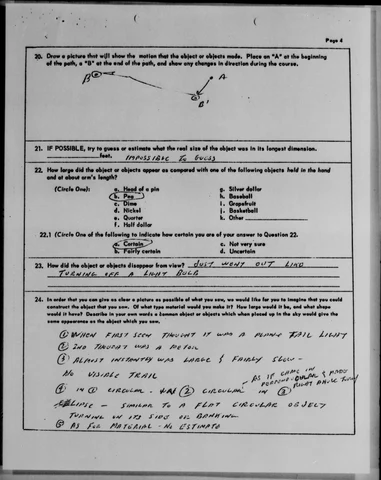 Page 4
20. Draw a picture that will show the motion that the object or objects made. Place an "A" at the beginning
of the path, a "B" at the end of the path, and show any changes in direction during the course.
B
A
B'
21. IF POSSIBLE, try to guess or estimate what the real size of the object was in its longest dimension.
feet. IMPOSSIBLE TO GUESS
22. How large did the object or objects appear as compared with one of the following objects held in the hand
and at about arm's length?
(Circle One): a. Head of a pin g. Silver dollar
b. Pea h. Baseball
c. Dime i. Grapefruit
d. Nickel j. Basketball
e. Quarter k. Other
f. Half dollar
22.1 (Circle One of the following to indicate how certain you are of your answer to Question 22.
a. Certain c. Not very sure
b. Fairly certain d. Uncertain
23. How did the object or objects disappear from view? JUST WENT OUT LIKE
TURNING OFF A LIGHT BULB
24. In order that you can give as clear a picture as possible of what you saw, we would like for you to imagine that you could
construct the object that you saw. Of what type material would you make it? How large would it be, and what shape
would it have? Describe in your own words a common object or objects which when placed up in the sky would give the
same appearance as the object which you saw.
① WHEN FIRST SEEN THOUGHT IT WAS A PLANE TAIL LIGHT
② 2ND THOUGHT WAS A METEOR
③ ALMOST INSTANTLY WAS LARGE & FAIRLY SLOW-
NO VISIBLE TRAIL
④ IN ① CIRCULAR - ② CIRCULAR IN ③
AS IT CAME IN
& MADE
RIGHT ANGLE TURN
ELLIPSE - SIMILAR TO A FLAT CIRCULAR OBJECT
TURNING ON ITS SIDE OR BANKING
⑤ AS FOR MATERIAL - NO ESTIMATE